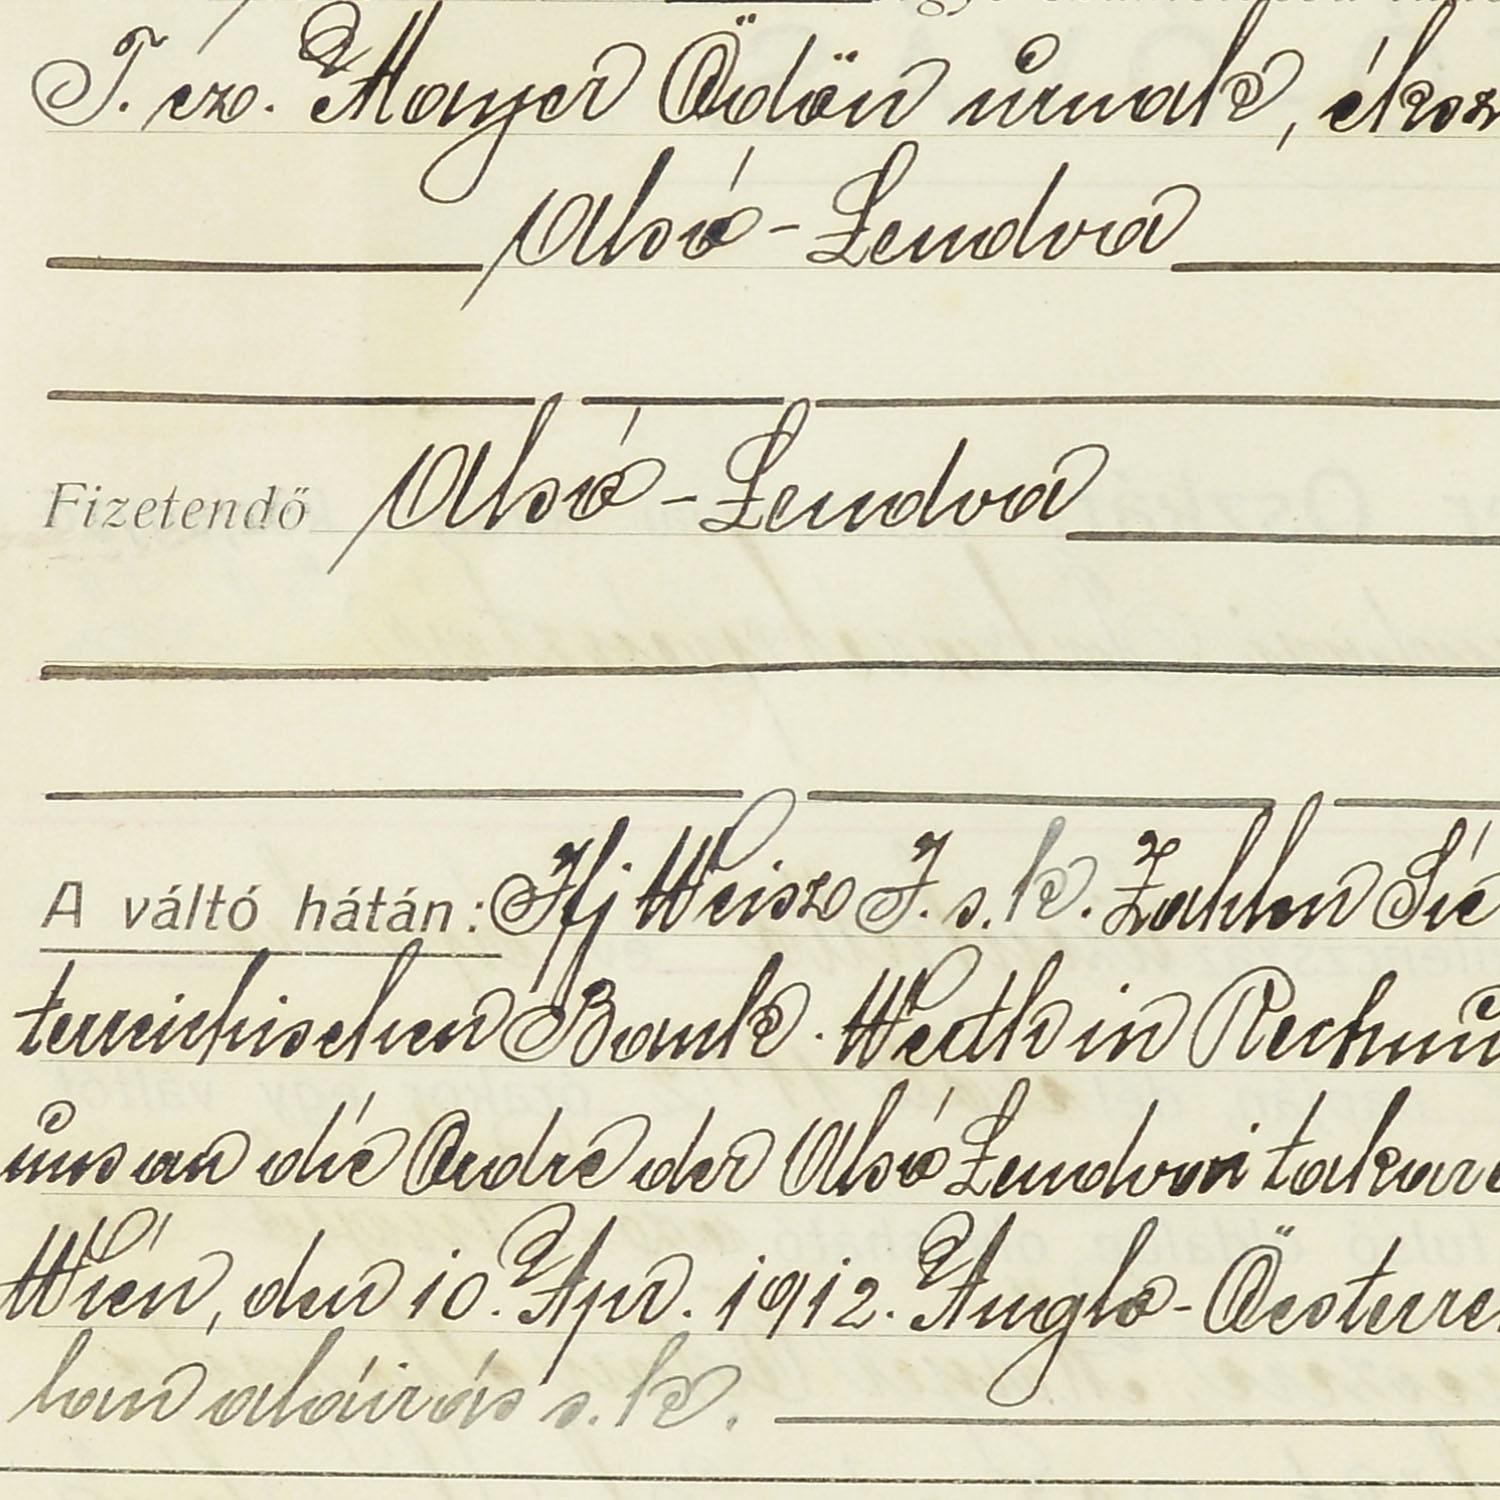 T. cz. Mayer Ödön úrnak, éksz
Alsó-Lendva
Fizetendő Alsó-Lendva
A váltó hátán: Ifj Weisz J. s. k. Zahlen Sie
terreichischen Bank. Werth in Rechnu
uns an die Ordre der Alsó Lendvai takaré
Wien, den 10. Apr. 1912. Anglo-Oesterre
lan aláírás s. k.